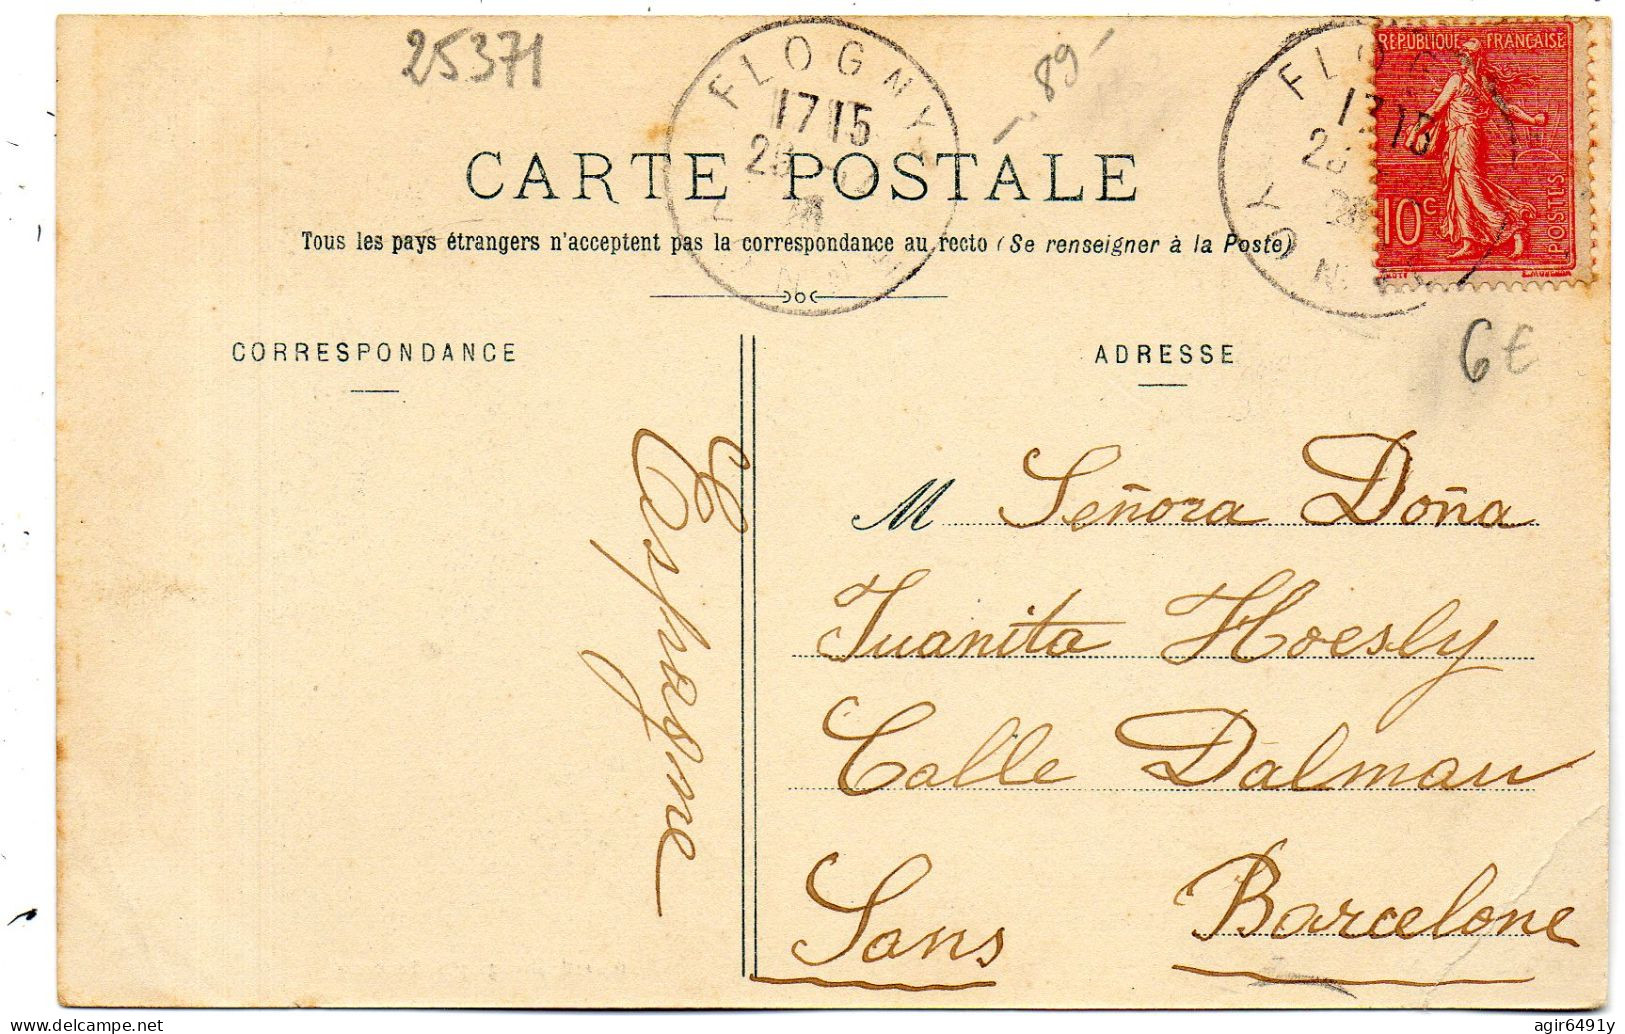 25371
FLOGNY
17 15
YONNE
89
FLOGNY
YONNE
REPUBLIQUE FRANÇAISE
10c
POSTES
CARTE POSTALE
Tous les pays étrangers n'acceptent pas la correspondance au recto (Se renseigner à la Poste)
6€
CORRESPONDANCE
ADRESSE
M Señora Doña
Juanita Hoesly
Calle Dalmau
Sans Barcelone
Espagne
agir6491y